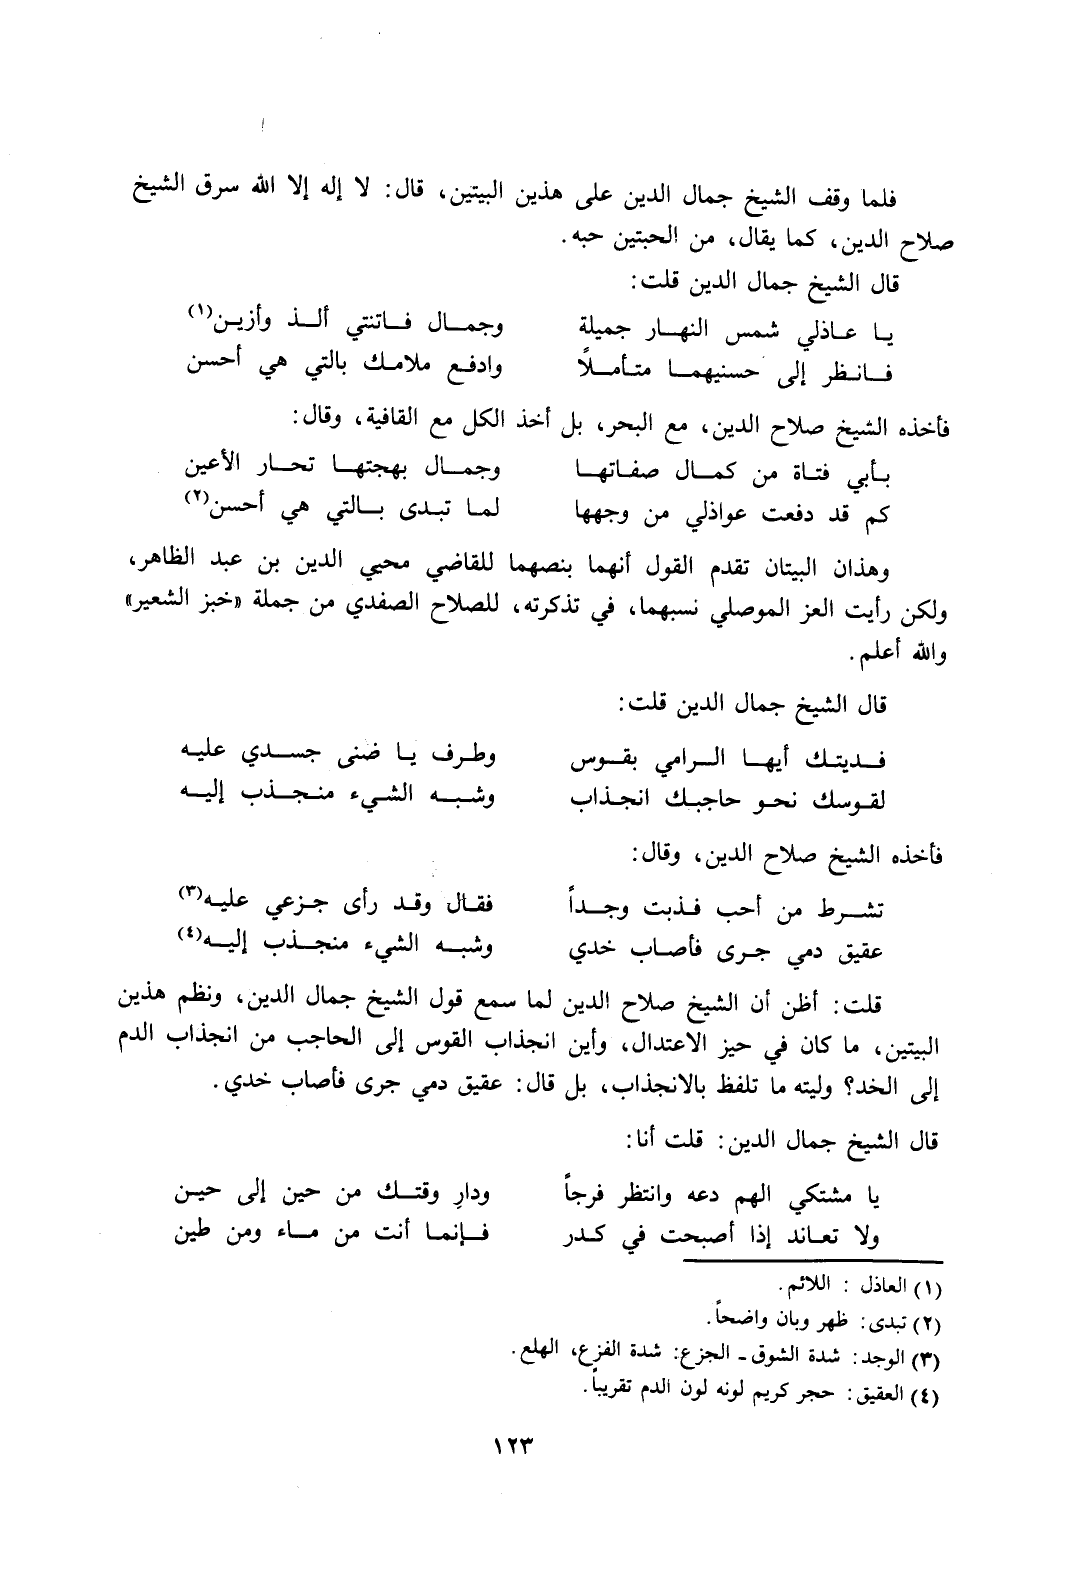 فلما وقف الشيخ جمال الدين على هذين البيتين، قال: لا إله إلا الله سرق الشيخ
صلاح الدين، كما يقال، من الحبتين حبه.
قال الشيخ جمال الدين قلت:
يا عاذلي شمس النهار جميلة وجمال فاتنتي ألذ وأزين(١)
فانظر إلى حسنيهما متأملاً وادفع ملامك بالتي هي أحسن
فأخذه الشيخ صلاح الدين، مع البحر، بل أخذ الكل مع القافية، وقال:
بأبي فتاة من كمال صفاتها وجمال بهجتها تحار الأعين
كم قد دفعت عواذلي من وجهها لما تبدى بالتي هي أحسن(٢)
وهذان البيتان تقدم القول أنهما بنصهما للقاضي محيي الدين بن عبد الظاهر،
ولكن رأيت العز الموصلي نسبهما، في تذكرته، للصلاح الصفدي من جملة «خبز الشعير»
والله أعلم.
قال الشيخ جمال الدين قلت:
فديتك أيها الرامي بقوس وطرف يا ضنى جسدي عليه
لقوسك نحو حاجبك انجذاب وشبه الشيء منجذب إليه
فأخذه الشيخ صلاح الدين، وقال:
تشرط من أحب فذبت وجداً فقال وقد رأى جزعي عليه(٣)
عقيق دمي جرى فأصاب خدي وشبه الشيء منجذب إليه(٤)
قلت: أظن أن الشيخ صلاح الدين لما سمع قول الشيخ جمال الدين، ونظم هذين
البيتين، ما كان في حيز الاعتدال، وأين انجذاب القوس إلى الحاجب من انجذاب الدم
إلى الخد؟ وليته ما تلفظ بالانجذاب، بل قال: عقيق دمي جرى فأصاب خدي.
قال الشيخ جمال الدين: قلت أنا:
يا مشتكي الهم دعه وانتظر فرجاً ودارِ وقتك من حين إلى حين
ولا تعاند إذا أصبحت في كدر فإنما أنت من ماء ومن طين
(١) العاذل : اللائم.
(٢) تبدى: ظهر وبان واضحاً.
(٣) الوجد: شدة الشوق - الجزع: شدة الفزع، الهلع.
(٤) العقيق: حجر كريم لونه لون الدم تقريباً.
١٢٣